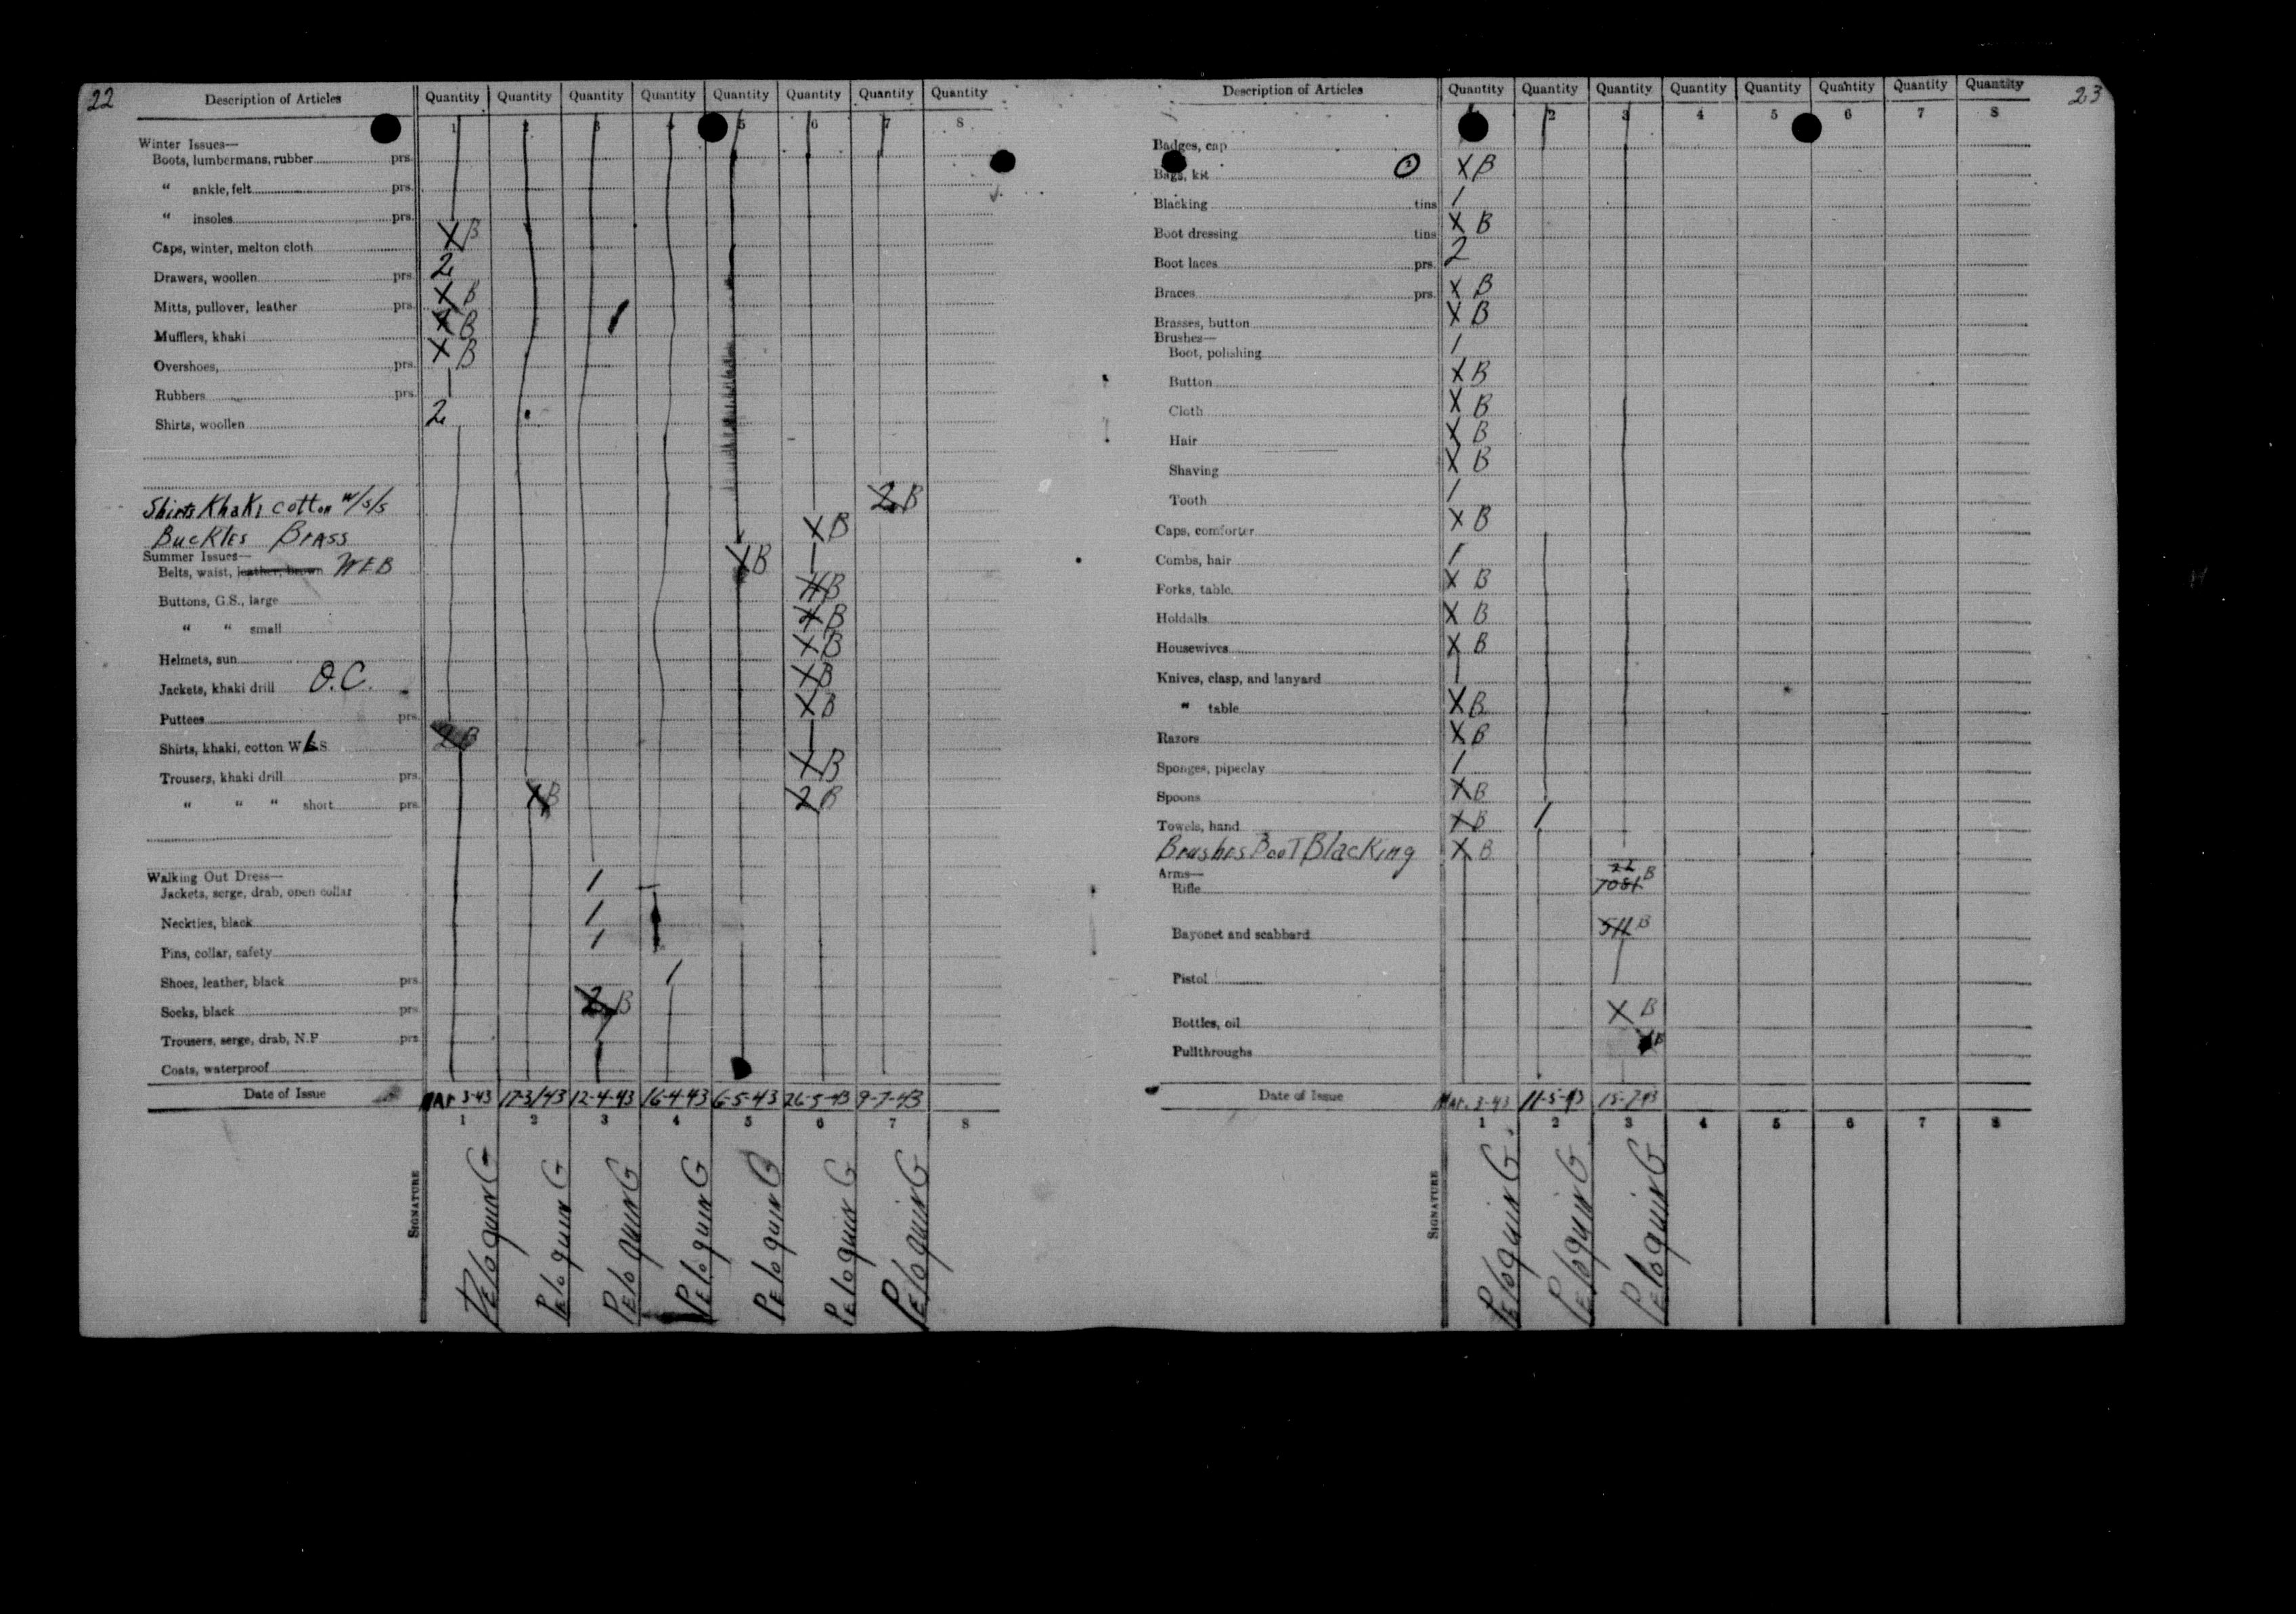 22
Description of Articles Quantity Quantity Quantity Quantity Quantity Quantity Quantity Quantity
1 2 3 4 5 6 7 8
Winter Issues—
Boots, lumbermans, rubber prs.
" ankle, felt prs.
" insoles prs.
Caps, winter, melton cloth X B
Drawers, woollen prs. 2
Mitts, pullover, leather prs. X B
Mufflers, khaki X B 1
Overshoes, prs. X B
Rubbers prs. 1
Shirts, woollen 2
Shirts Khaki cotton w/s/s 2 B
Buckles Brass X B
Summer Issues—
Belts, waist, leather, brown WEB X B
Buttons, G.S., large 4 B
" " small 4 B
Helmets, sun X B
Jackets, khaki drill O.C. X B
Puttees prs. X B
Shirts, khaki, cotton W.L.S. 2 B
Trousers, khaki drill prs. X B
" " " short prs. X B 2 B
Walking Out Dress—
Jackets, serge, drab, open collar 1
Neckties, black 1
Pins, collar, safety 1
Shoes, leather, black prs. 1
Socks, black prs. 2 B
Trousers, serge, drab, N.P. prs. 1
Coats, waterproof
Date of Issue Mar 3-43 17-3/43 12-4-43 16-4-43 6-5-43 26-5-43 9-7-43
1 2 3 4 5 6 7 8
SIGNATURE
Peloquin G
Peloquin G
Peloquin G
Peloquin G
Peloquin G
Peloquin G
Peloquin G
23
Description of Articles Quantity Quantity Quantity Quantity Quantity Quantity Quantity Quantity
2 3 4 5 6 7 8
Badges, cap
Bags, kit X B
Blacking tins 1
Boot dressing tins X B
Boot laces prs. 2
Braces prs. X B
Brasses, button X B
Brushes—
Boot, polishing 1
Button X B
Cloth X B
Hair X B
Shaving X B
Tooth 1
Caps, comforter X B
Combs, hair 1
Forks, table X B
Holdalls X B
Housewives X B
Knives, clasp, and lanyard 1
" table X B
Razors X B
Sponges, pipeclay 1
Spoons X B
Towels, hand X B 1
Brushes Boot Blacking X B
Arms—
Rifle B
Bayonet and scabbard B
Pistol
Bottles, oil X B
Pullthroughs B
Date of Issue Mar. 3-43 11-5-43 15-7-43
1 2 3 4 5 6 7 8
SIGNATURE
Peloquin G.
Peloquin G
Peloquin G